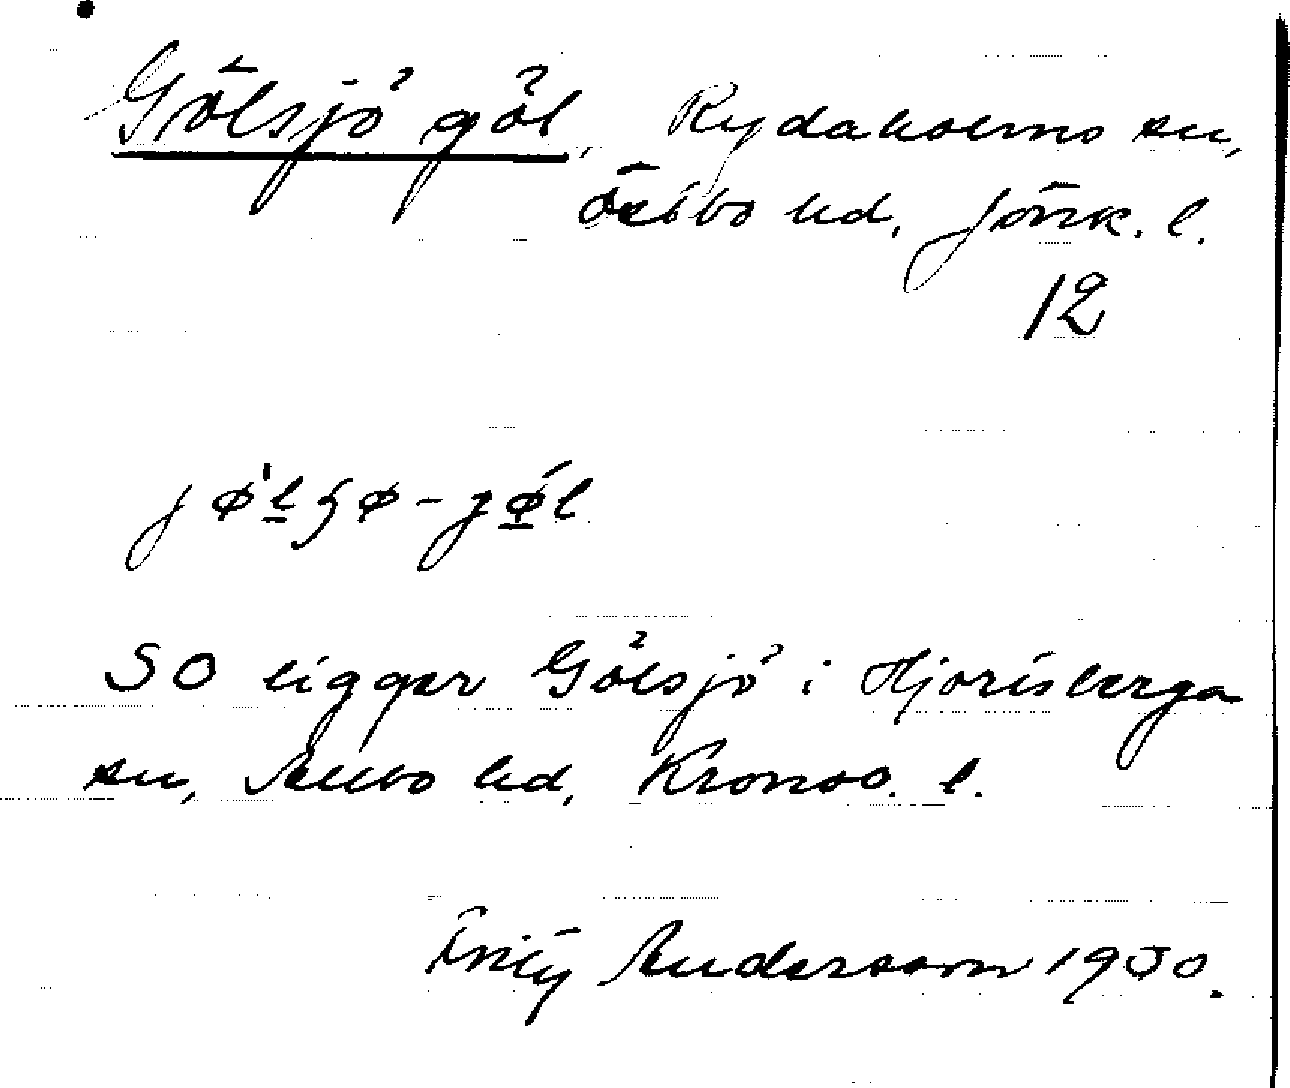 Gölsjö göl, Rydaholms sn,
Östbo hd, Jönk. l.
12
jø̀lʂø-jøl
SO ligger Gölsjö i Hjortsberga
sn, Allbo hd, Kronob. l.
Fritz Andersson 1930.